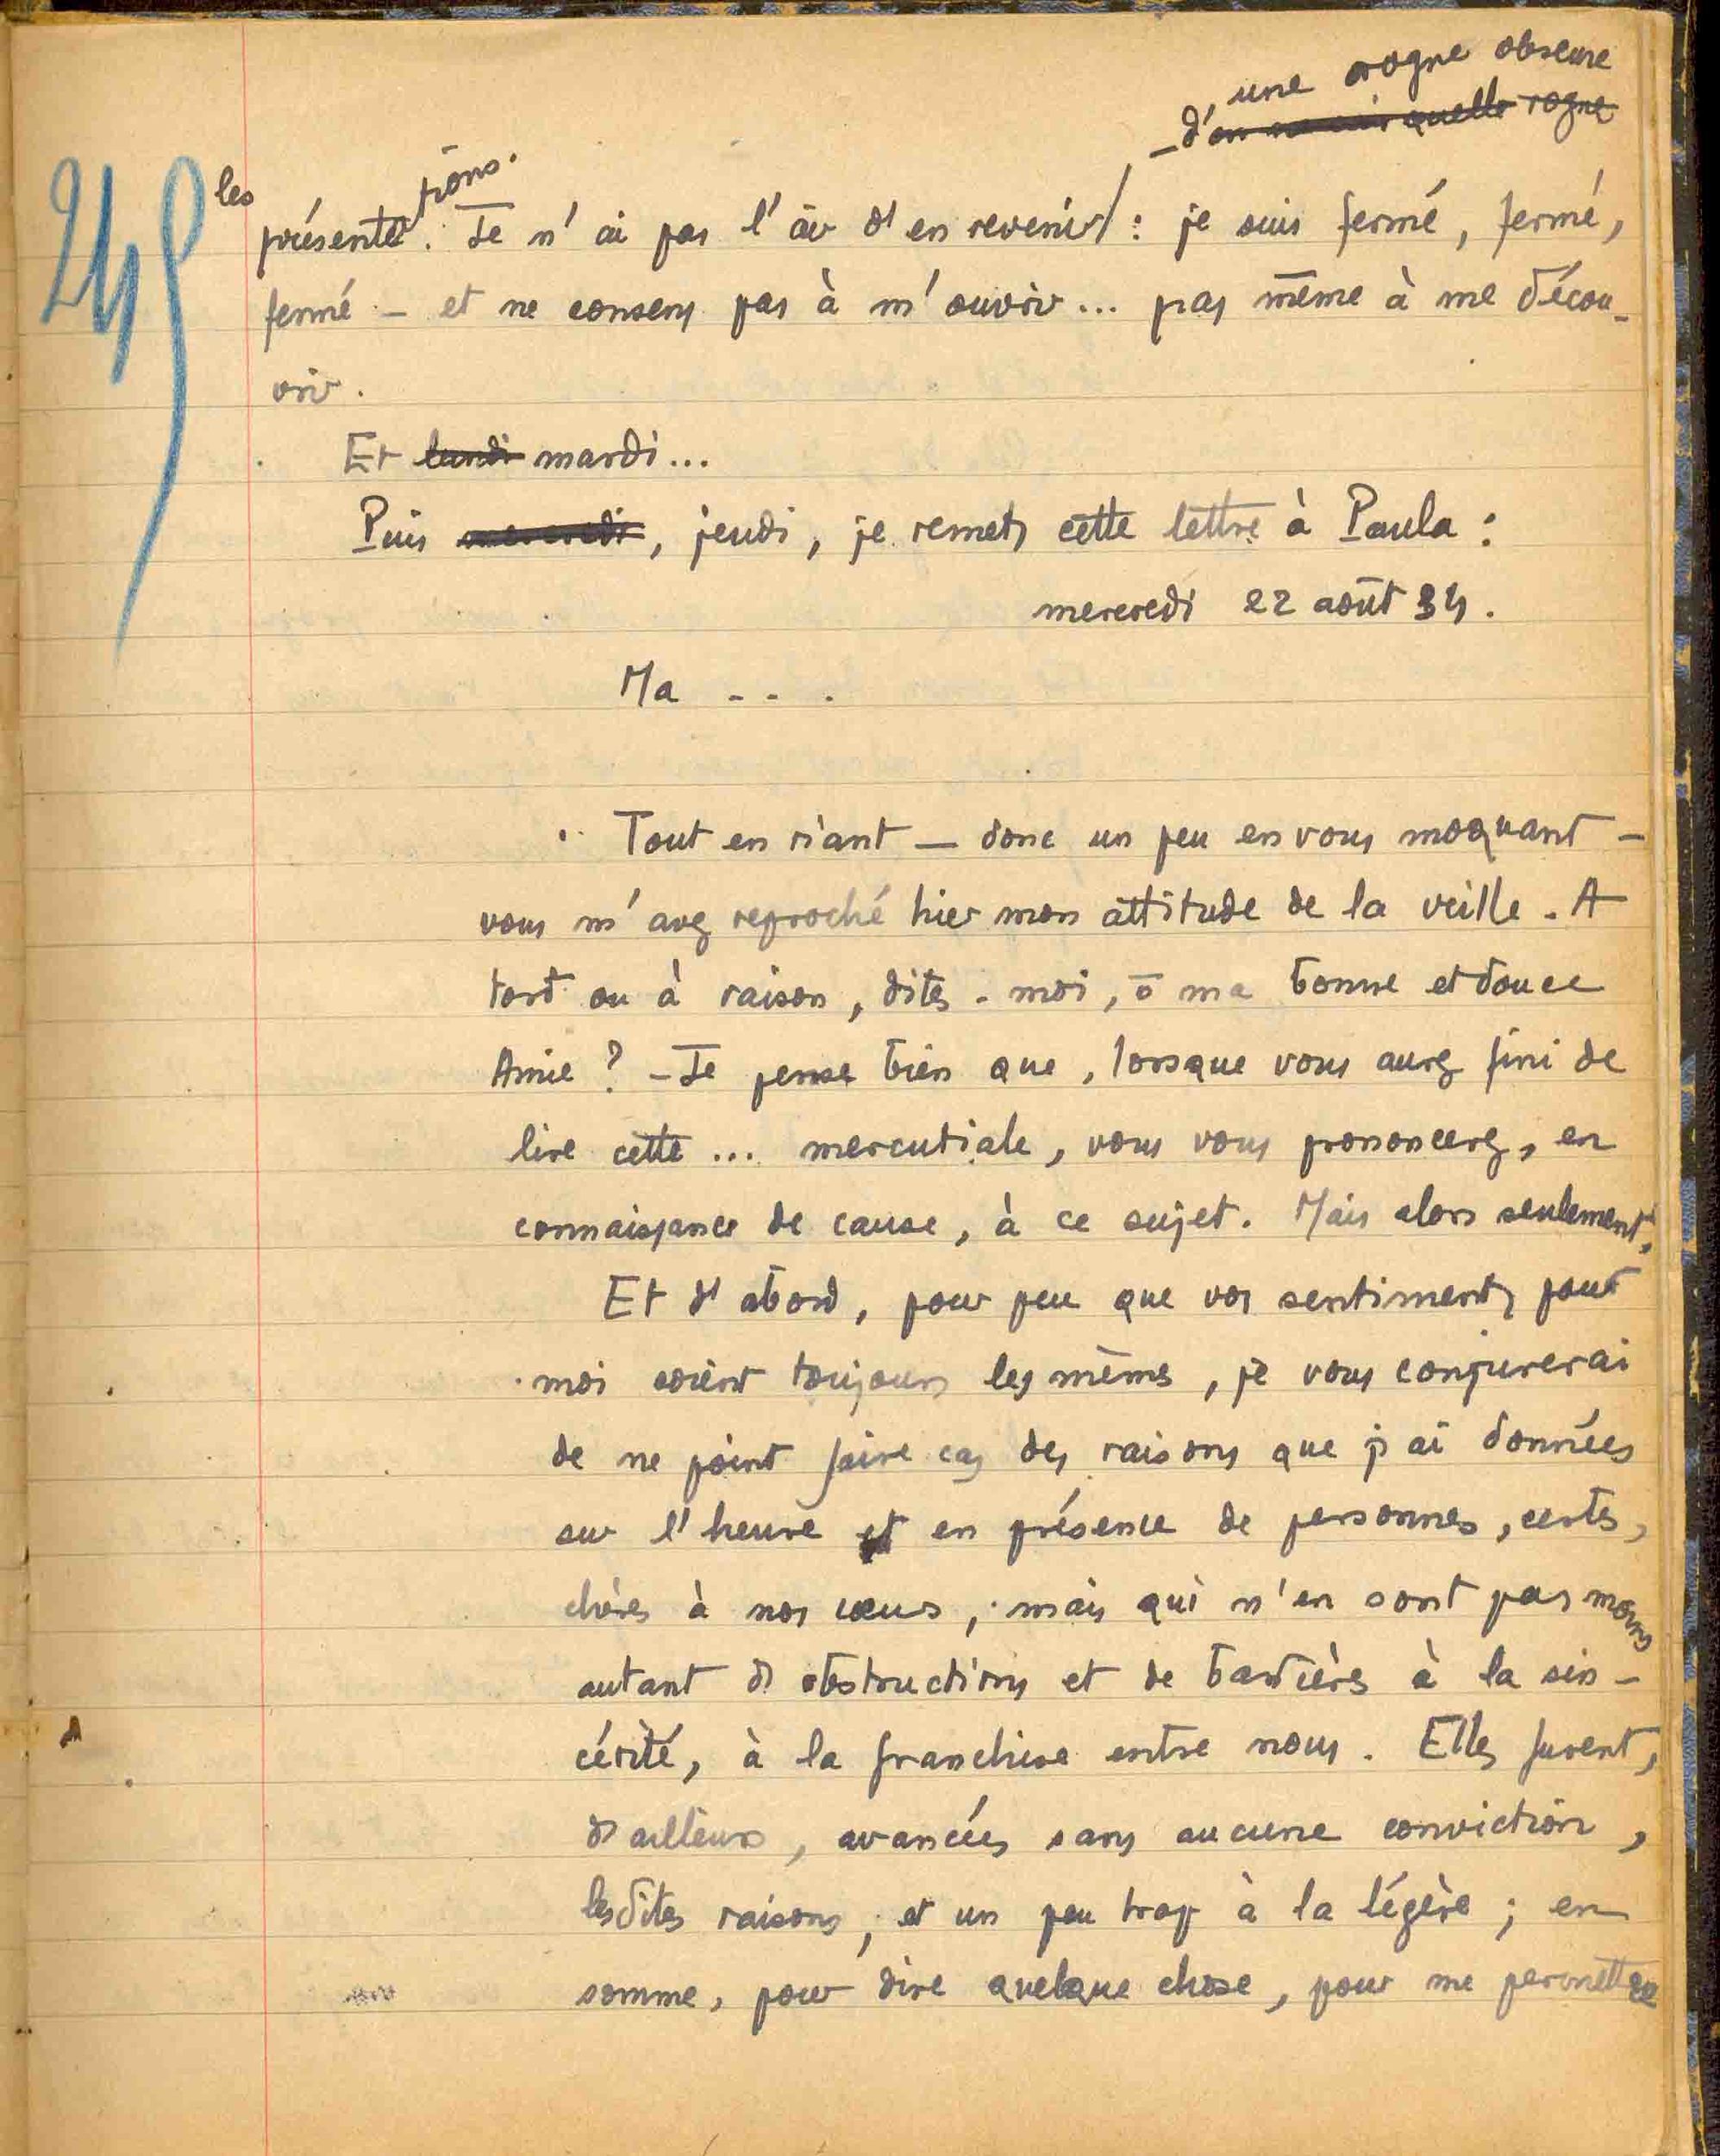 , une rogne obscure
— d'on ne sait quelle rogne
245
les
tions.
présente. Je n'ai pas l'air d'en revenir/ : je suis fermé, fermé,
fermé — et ne consens pas à m'ouvrir... pas même à me décou-
vrir.
Et lundi mardi...
Puis mercredi, jeudi, je remets cette lettre à Paula :
mercredi 22 août 34.
Ma - - .
Tout en riant — donc un peu en vous moquant —
vous m'avez reproché hier mon attitude de la veille. A
tort ou à raison, dites-moi, ô ma bonne et douce
Amie ? — Je pense bien que, lorsque vous aurez fini de
lire cette ... mercuriale, vous vous prononcerez, en
connaissance de cause, à ce sujet. Mais alors seulement.
Et d'abord, pour peu que vos sentiments pour
moi soient toujours les mêmes, je vous conjurerai
de ne point faire cas des raisons que j'ai données
sur l'heure et en présence de personnes, certes,
chères à nos cœurs, mais qui n'en sont pas moins
autant d'obstructions et de barrières à la sin-
cérité, à la franchise entre nous. Elles furent,
d'ailleurs, avancées sans aucune conviction,
lesdites raisons, et un peu trop à la légère ; en
somme, pour dire quelque chose, pour me permettre